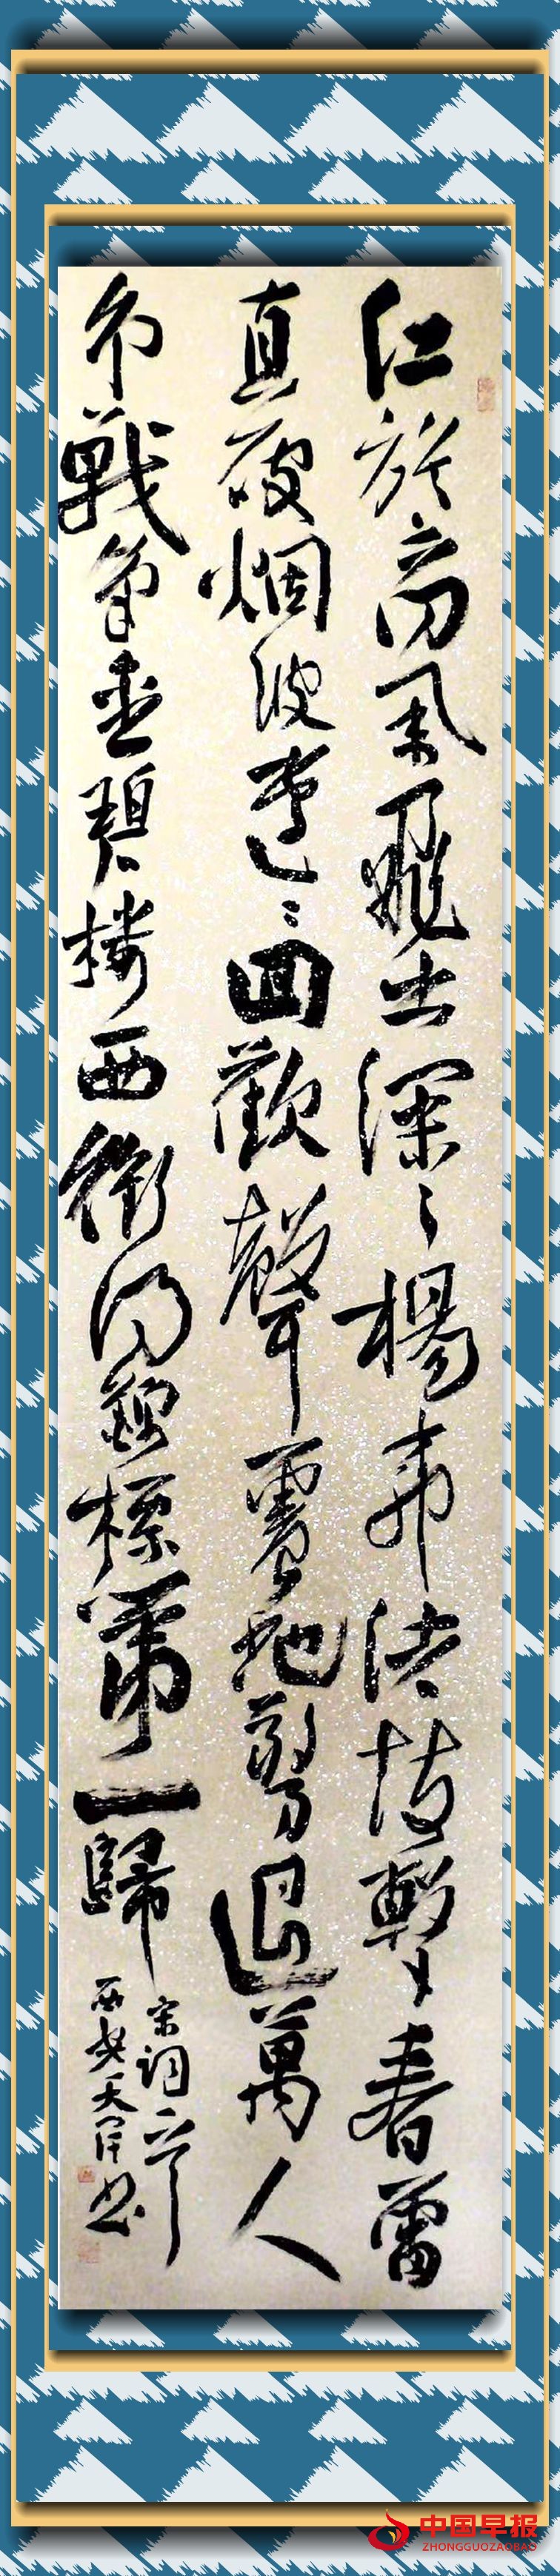 紅旗高舉飛出深〻楊柳渚鼓擊春雷
直破烟波遠〻回歡聲震地驚退萬人
爭戰氣金碧樓西銜得錦標第一歸
宋詞一首
中国早报
ZHONGGUOZAOBAO